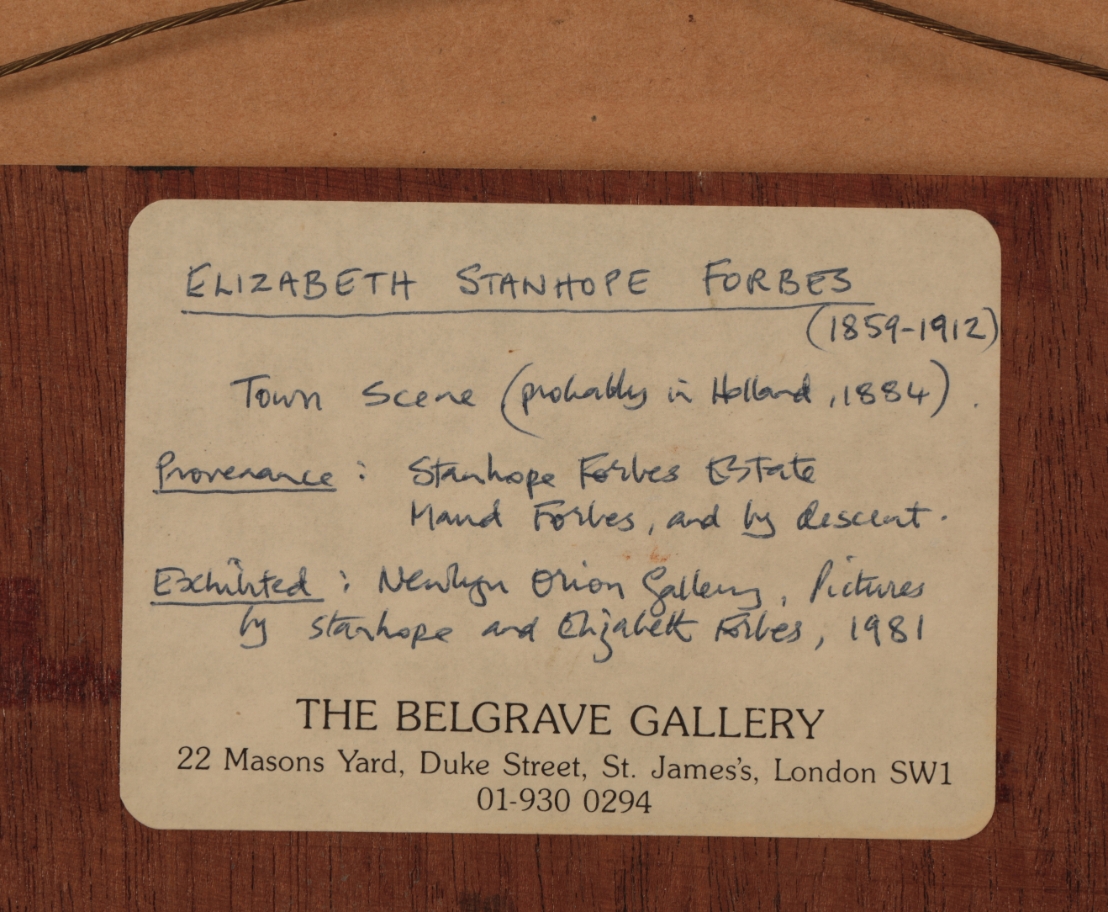 ELIZABETH STANHOPE FORBES
(1859-1912)
Town Scene (probably in Holland, 1884).
Provenance: Stanhope Forbes Estate
Maud Forbes, and by descent.
Exhibited: Newlyn Orion Gallery, Pictures
by Stanhope and Elizabeth Forbes, 1981
THE BELGRAVE GALLERY
22 Masons Yard, Duke Street, St. James's, London SW1
01-930 0294